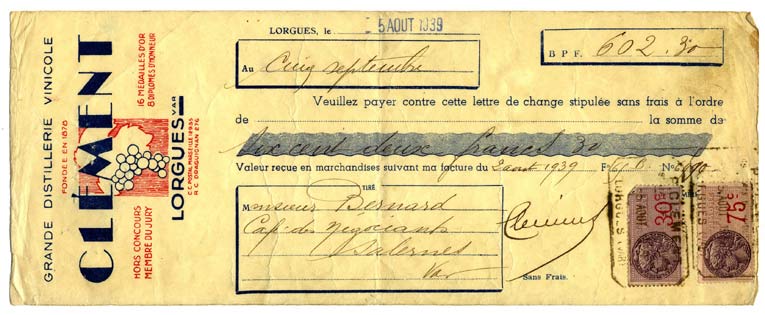 GRANDE DISTILLERIE VINICOLE
FONDÉE EN 1878
CLÉMENT
16 MEDAILLES D'OR
8 DIPLOMES D'HONNEUR
HORS CONCOURS
MEMBRE DU JURY
LORGUES VAR
C.C. POSTAL MARSEILLE
R.C. DRAGUIGNAN 276
LORGUES, le 5 AOUT 1939
B P F. 602.30
Au Cinq septembre
Veuillez payer contre cette lettre de change stipulée sans frais à l'ordre
de la somme de
Six cent deux francs 30
Valeur reçue en marchandises suivant ma facture du 2 aout 1939
TIRÉ
Monsieur Bernard
Café des Négociants
Salernes
Var
Clément
Sans Frais.
30c
75c